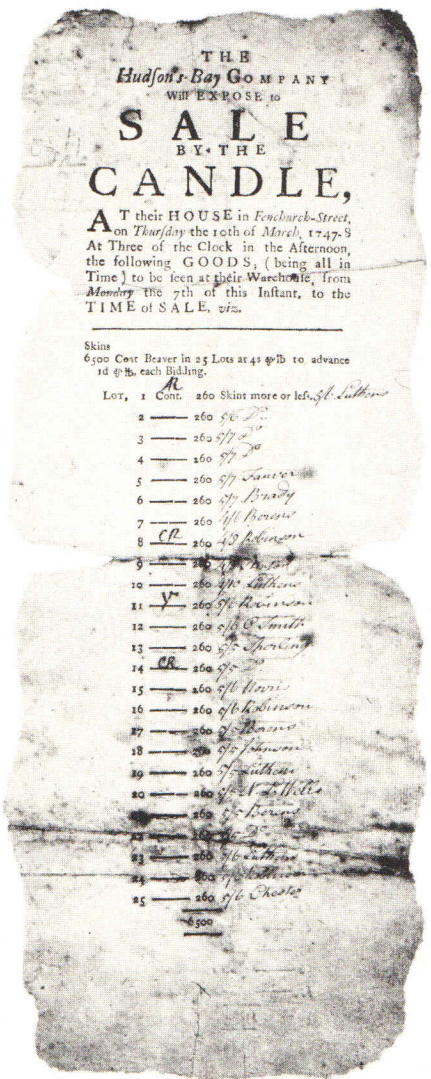 THE
Hudſon's-Bay COMPANY
Will EXPOSE to
SALE
BY·THE
CANDLE,
AT their HOUSE in Fenchurch-Street,
on Thurſday the 10th of March, 1747-8
At Three of the Clock in the Afternoon,
the following GOODS, (being all in
Time) to be ſeen at their Warehouſe, from
Monday the 7th of this Inſtant, to the
TIME of SALE, viz.
Skins
6500 Coat Beaver in 25 Lots at 4s ꝑ lb to advance
1d ꝑ lb. each Bidding.
LOT, 1 Cont. 260 Skins more or leſs. Luthens
2 — 260 5/6 Do
3 — 260 5/7 Do
4 — 260 5/7 Do
5 — 260 5/7
6 — 260 5/7 Brady
7 — 260 Berens
8 CR 260 Robinson
9 — 260
10 — 260 Luthens
11 — 260 5/6 Robinson
12 — 260 5/6 Smith
13 — 260 5/5
14 CR 260 5/5 Do
15 — 260 5/6 Norris
16 — 260 5/6 Robinson
17 — 260 5/5 Berens
18 — 260 5/5 Johnson
19 — 260 5/5 Luthens
20 — 260 5/5
— 260 5/5 Berens
22 — 260 Do
23 — 260 5/6 Luthens
24 — 260
25 — 260 5/6 Chester
6500